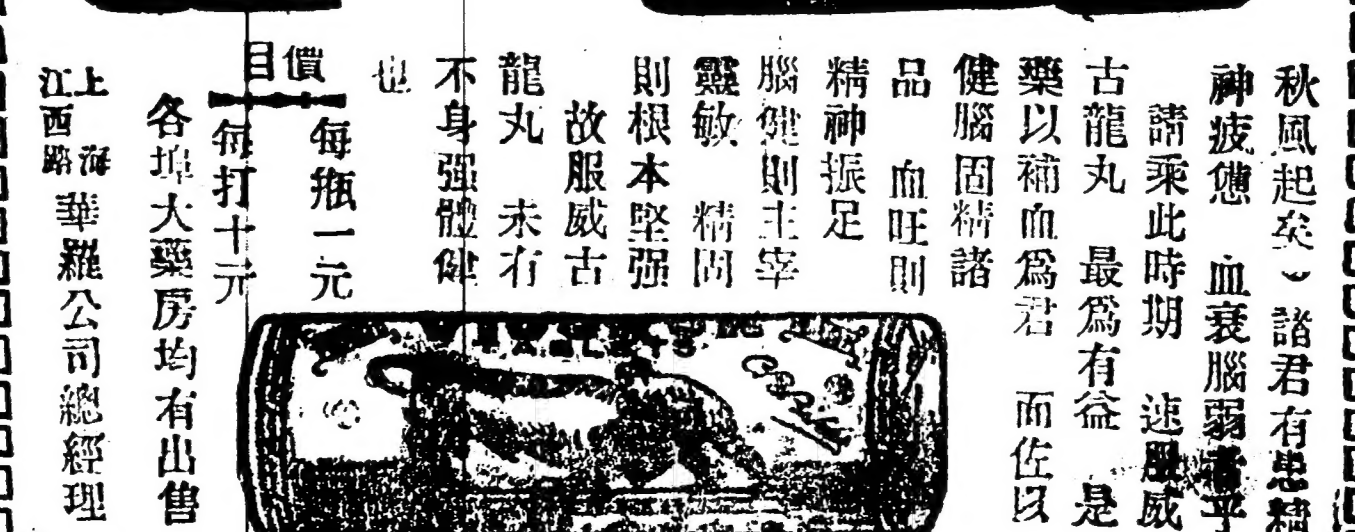 秋風起矣 諸君有患精
神疲憊 血衰腦弱者乎
請乘此時期 速服威
古龍丸 最爲有益 是
藥以補血爲君 而佐以
健腦固精諸
品 血旺則
精神振足
腦健則主宰
靈敏 精固
則根本堅强
故服威古
龍丸 未有
不身强體健
也
價目
每瓶一元
每打十元
各埠大藥房均有出售
上海
江西路
華羅公司總經理